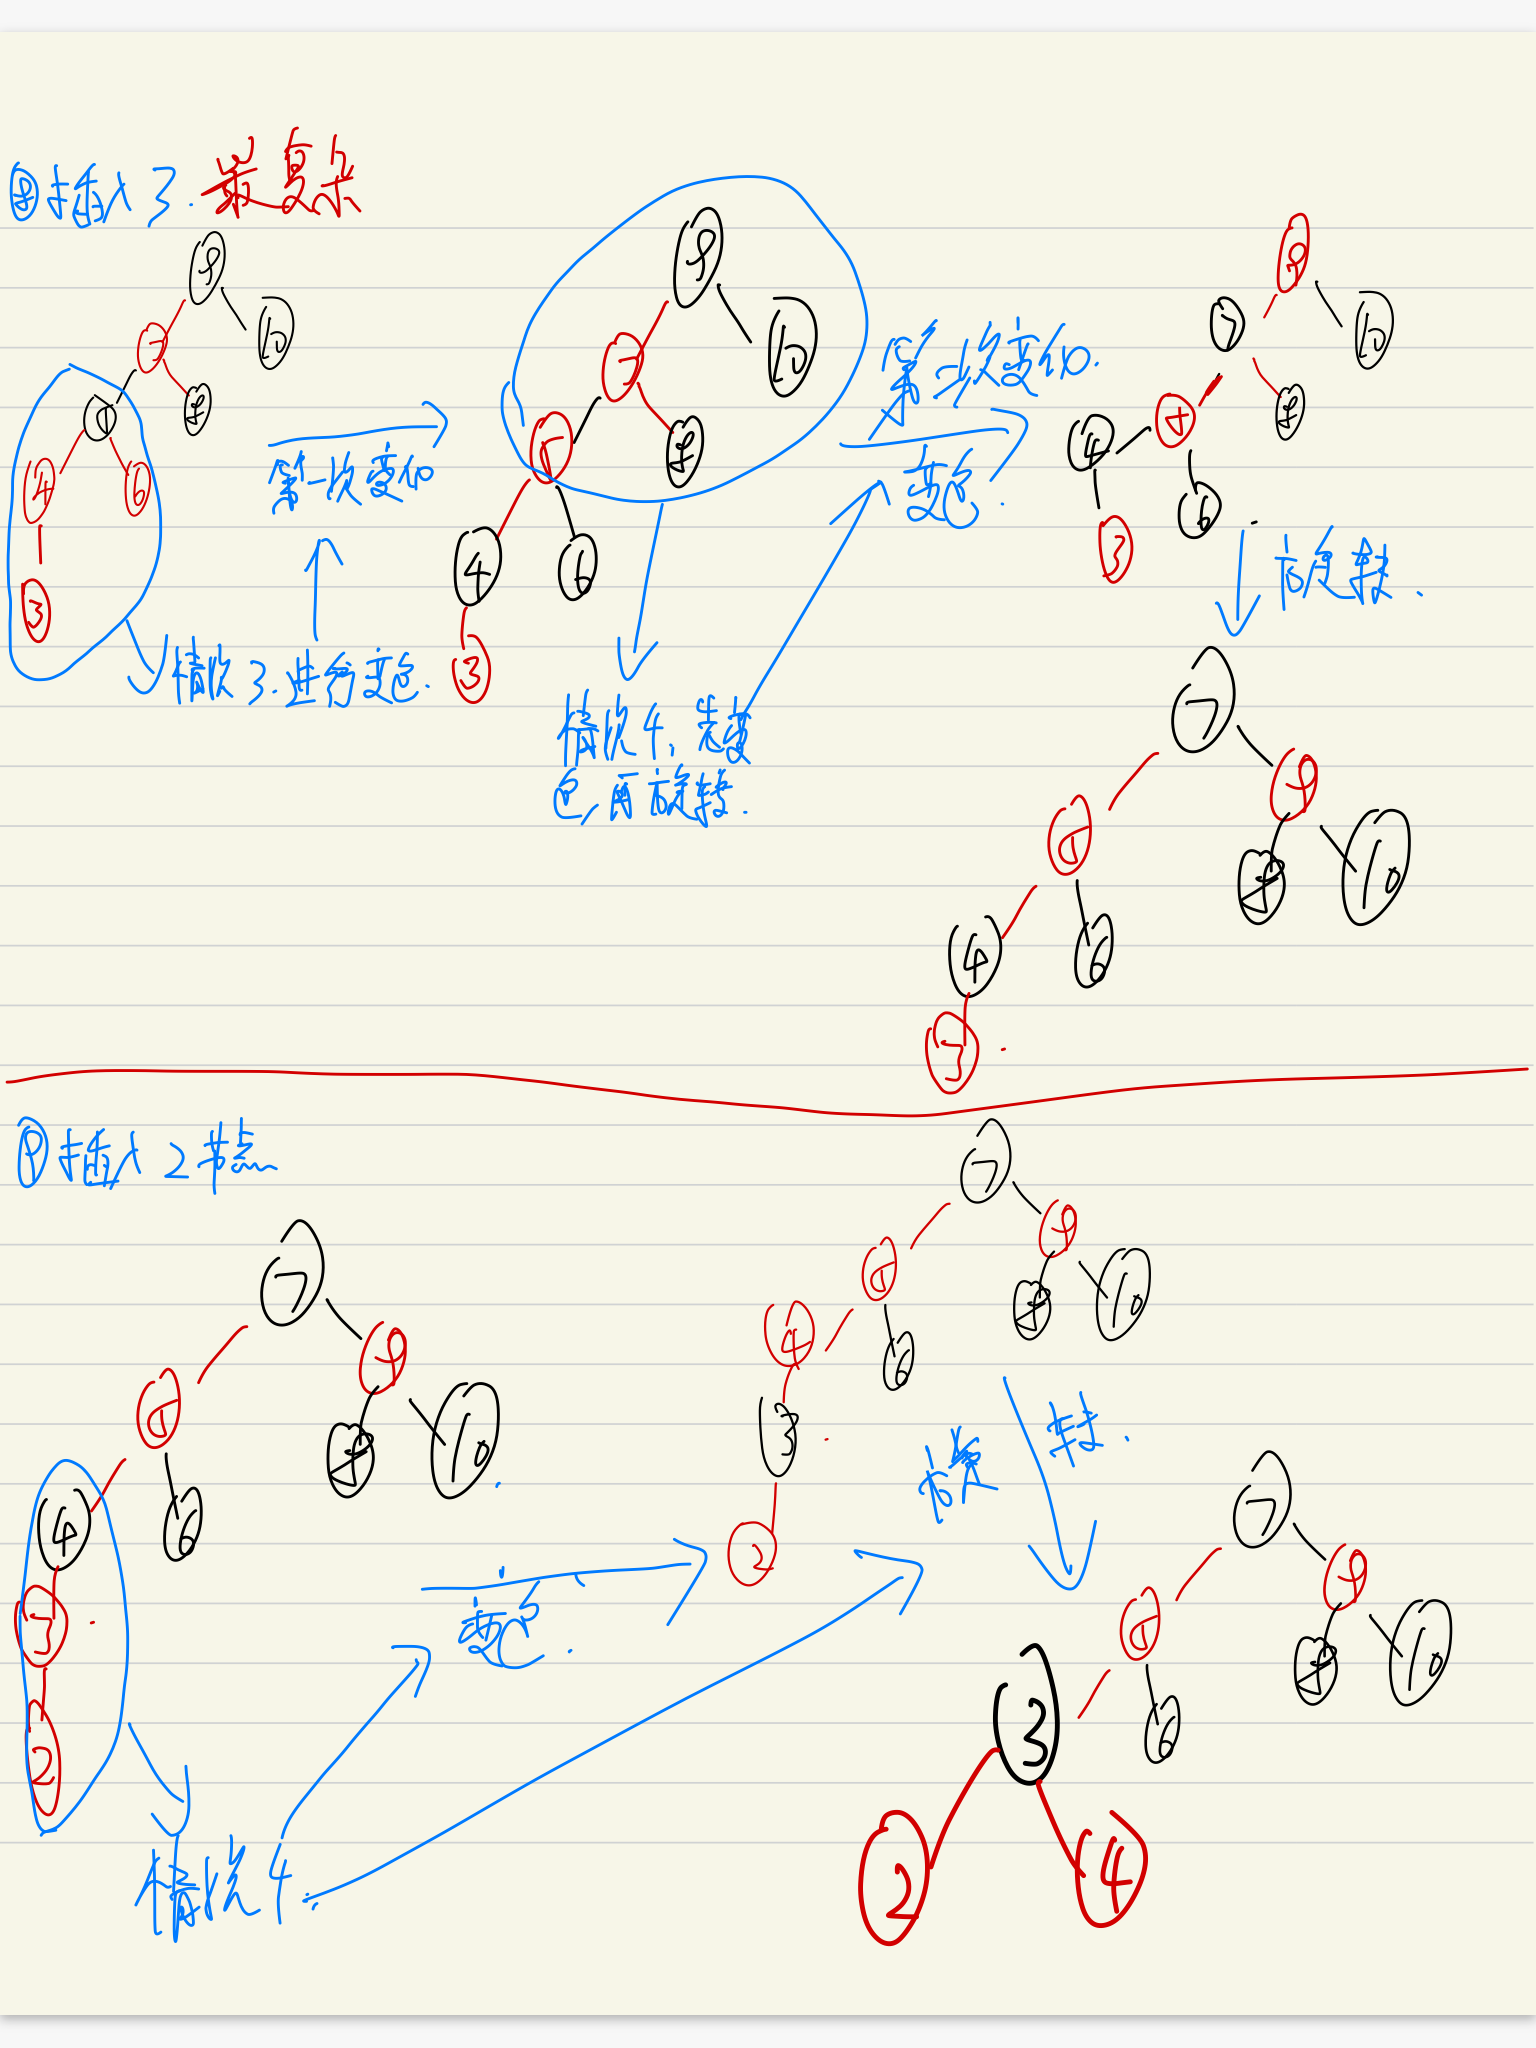 ⑧插入 3. 最复杂
9
7
10
5
8
4
6
3
第一次变化
情况 3. 进行变色.
9
7
10
5
8
4
6
3
情况 4, 先变
色, 再旋转.
第二次变化.
变色.
9
7
10
5
8
4
6
3
旋转.
7
5
9
4
6
8
10
3
⑨插入 2 节点
7
5
9
4
6
8
10
3
2
情况 4.
变色.
7
5
9
4
6
8
10
3
2
旋转.
7
5
9
3
6
8
10
2
4